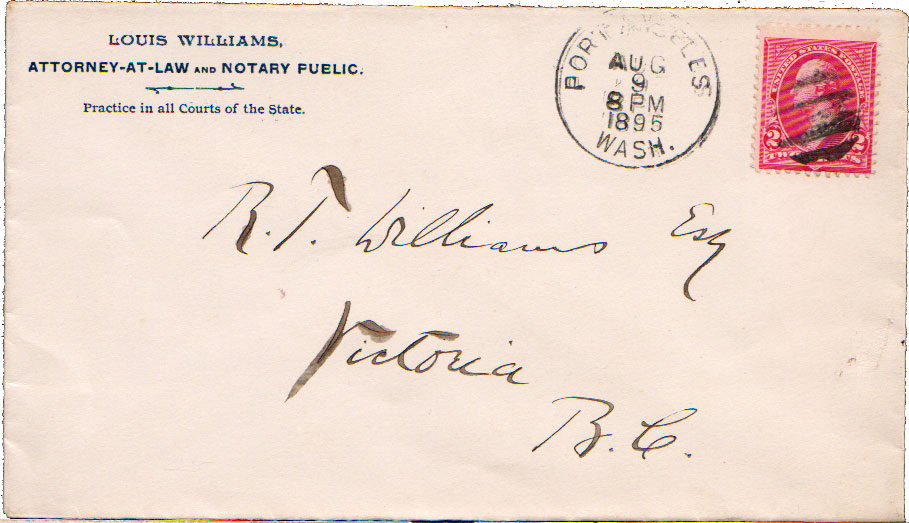 LOUIS WILLIAMS,
ATTORNEY-AT-LAW AND NOTARY PUBLIC.
Practice in all Courts of the State.
PORT ANGELES
AUG
9
8 PM
1895
WASH.
UNITED STATES POSTAGE
2 2
R. T. Williams Esq
Victoria
B. C.